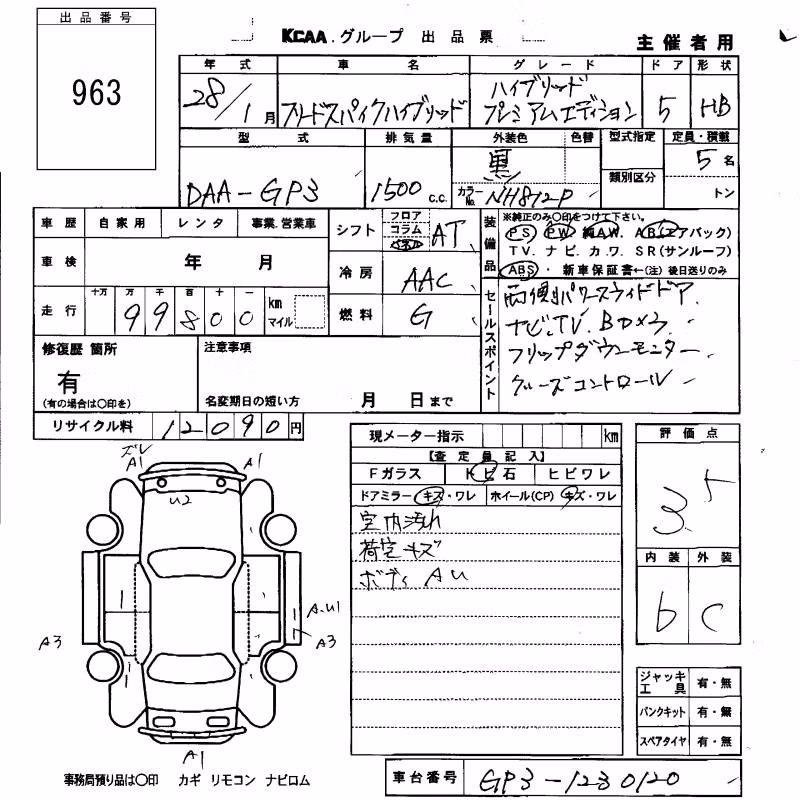 出品番号
963
KCAA.グループ 出品票
主催者用
年式 車名 グレード ドア 形状
28/1月 フリードスパイクハイブリッド ハイブリッド プレミアムエディション 5 HB
型式 排気量 外装色 色替 型式指定 定員・積載
DAA-GP3 1500 c.c. 黒 類別区分 5名
カラーNo. NH812P トン
車歴 自家用 レンタ 事業.営業車
シフト フロア コラム インパネ AT
装備品
※純正のみ〇印をつけて下さい。
PS PW 純A.W. AB(エアバック)
TV. ナビ. カ.ワ. SR(サンルーフ)
ABS ・ 新車保証書←(注)後日送りのみ
車検 年 月
冷房 AAC
走行 十万 万 千 百 十 一 km マイル
99800
燃料 G
セールスポイント
両側パワースライドドア
ナビ.TV. Bカメラ
フリップダウンモニター
クルーズコントロール
修復歴 箇所
有
(有の場合は〇印を)
注意事項
名変期日の短い方 月 日まで
リサイクル料 12090円
現メーター指示 km
【査定員記入】
Fガラス トビ石 ヒビワレ
ドアミラー キズ・ワレ ホイール(CP) キズ・ワレ
室内汚れ
荷室キズ
ボディAU
評価点
3.5
内装 外装
b C
ズレ
A1 A1
U2
A.U1
A3 A3
A1
ジャッキ工具 有・無
パンクキット 有・無
スペアタイヤ 有・無
事務局預り品は〇印 カギ リモコン ナビロム
車台番号 GP3-1230120